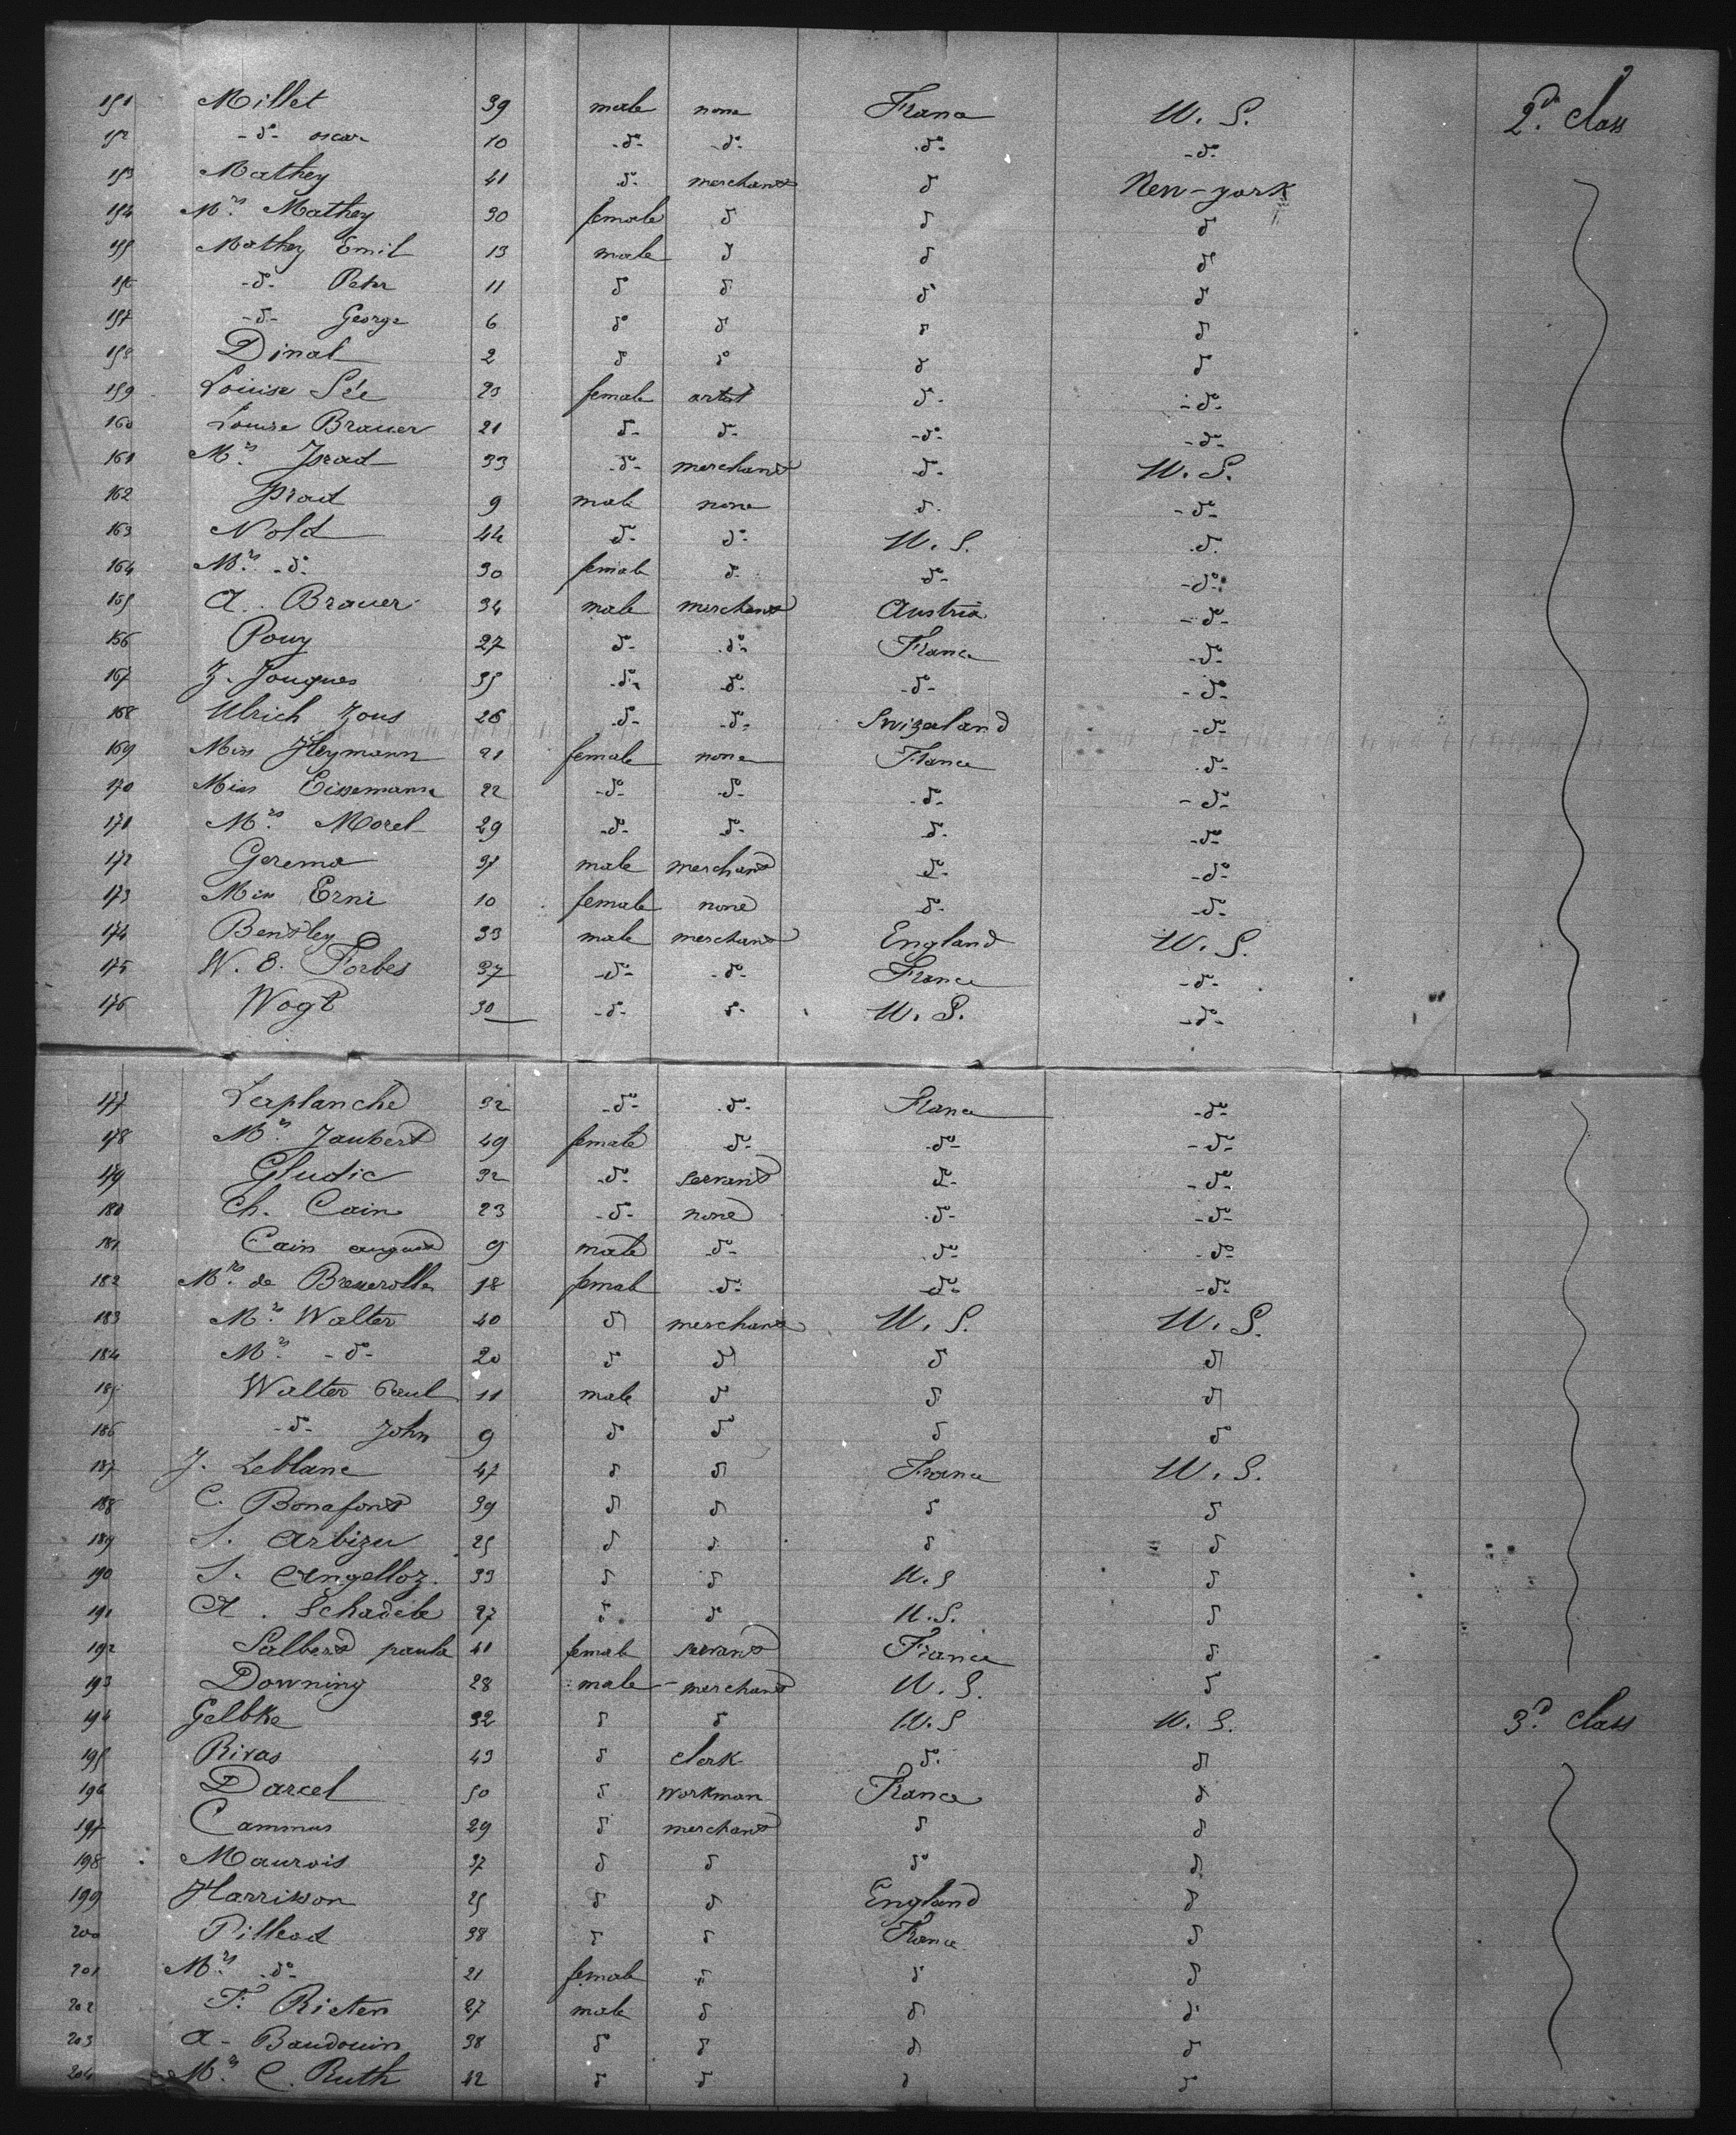 151 Millet 39 male none France U. S. 2d. class
152 -do- oscar 10 -do- -do- -do- -do-
153 Mathey 41 -do- merchant do New-york
154 Mrs. Mathey 30 female do do do
155 Mathey Emil 13 male do do do
156 -do- Peter 11 do do do do
157 -do- George 6 do do do do
158 Dinal 2 do do do do
159 Louise Sée 23 female artist do -do-
160 Louise Brauer 21 do- do- -do- -do-
161 Mrs. Israel 33 -do- merchant -do- U. S.
162 Israel 9 male none do -do-
163 Nold 44 do- do- U. S. do
164 Mrs. -do- 30 female do -do- -do-
165 A. Brauer 34 male merchant Austria -do-
166 Pouy 27 do- do- France -do-
167 J. Jougues 35 -do- -do- -do- -do-
168 Ulrich Zous 26 -do- -do- Swizerland -do-
169 Miss Heymann 21 female none France do-
170 Miss Eissemann 22 -do- -do- -do- -do-
171 Mrs. Morel 29 -do- -do- do- -do-
172 Gerema 37 male merchand do- -do-
173 Miss Erni 10 female none do- -do-
174 Bentley 33 male merchant England U. S.
175 W. E. Forbes 37 -do- -do- France -do-
176 Wogt 30 -do- do- U. S. -do-
177 Laplanche 32 -do- do- France -do-
178 Mrs. Jaubert 49 female do- -do- -do-
179 Gludic 32 -do- servant do- -do-
180 Ch. Cain 23 -do- none do- -do-
181 Cain august 9 male -do- -do- -do-
182 Mrs. de 18 female -do- -do- -do-
183 Mrs. Walter 40 do merchant U. S. U. S.
184 Mrs. -do- 20 do do do do
185 Walter Paul 11 male do do do
186 -do- John 9 do do do do
187 J. Leblanc 47 do do France U. S.
188 C. Bonafont 39 do do do do
189 S. Arbizu 25 do do do do
190 S. Angelloz 33 do do U. S do
191 A. Schadele 27 do do U. S. do
192 Salbert paula 41 female servant France do
193 Downing 28 male merchand U. S. do
194 Gelbke 32 do do U. S U. S. 3d. class
195 Rivas 43 do clerk do- do
196 Darcel 50 do workman France do
197 Cammus 29 do merchant do do
198 Maurois 37 do do do do
199 Harrisson 25 do do England do
200 38 do do France do
201 Mrs. -do- 21 female do do do
202 F. Rieten 27 male do do do
203 A- Baudouin 38 do do do do
204 Mrs. C. Ruth 42 do do do do